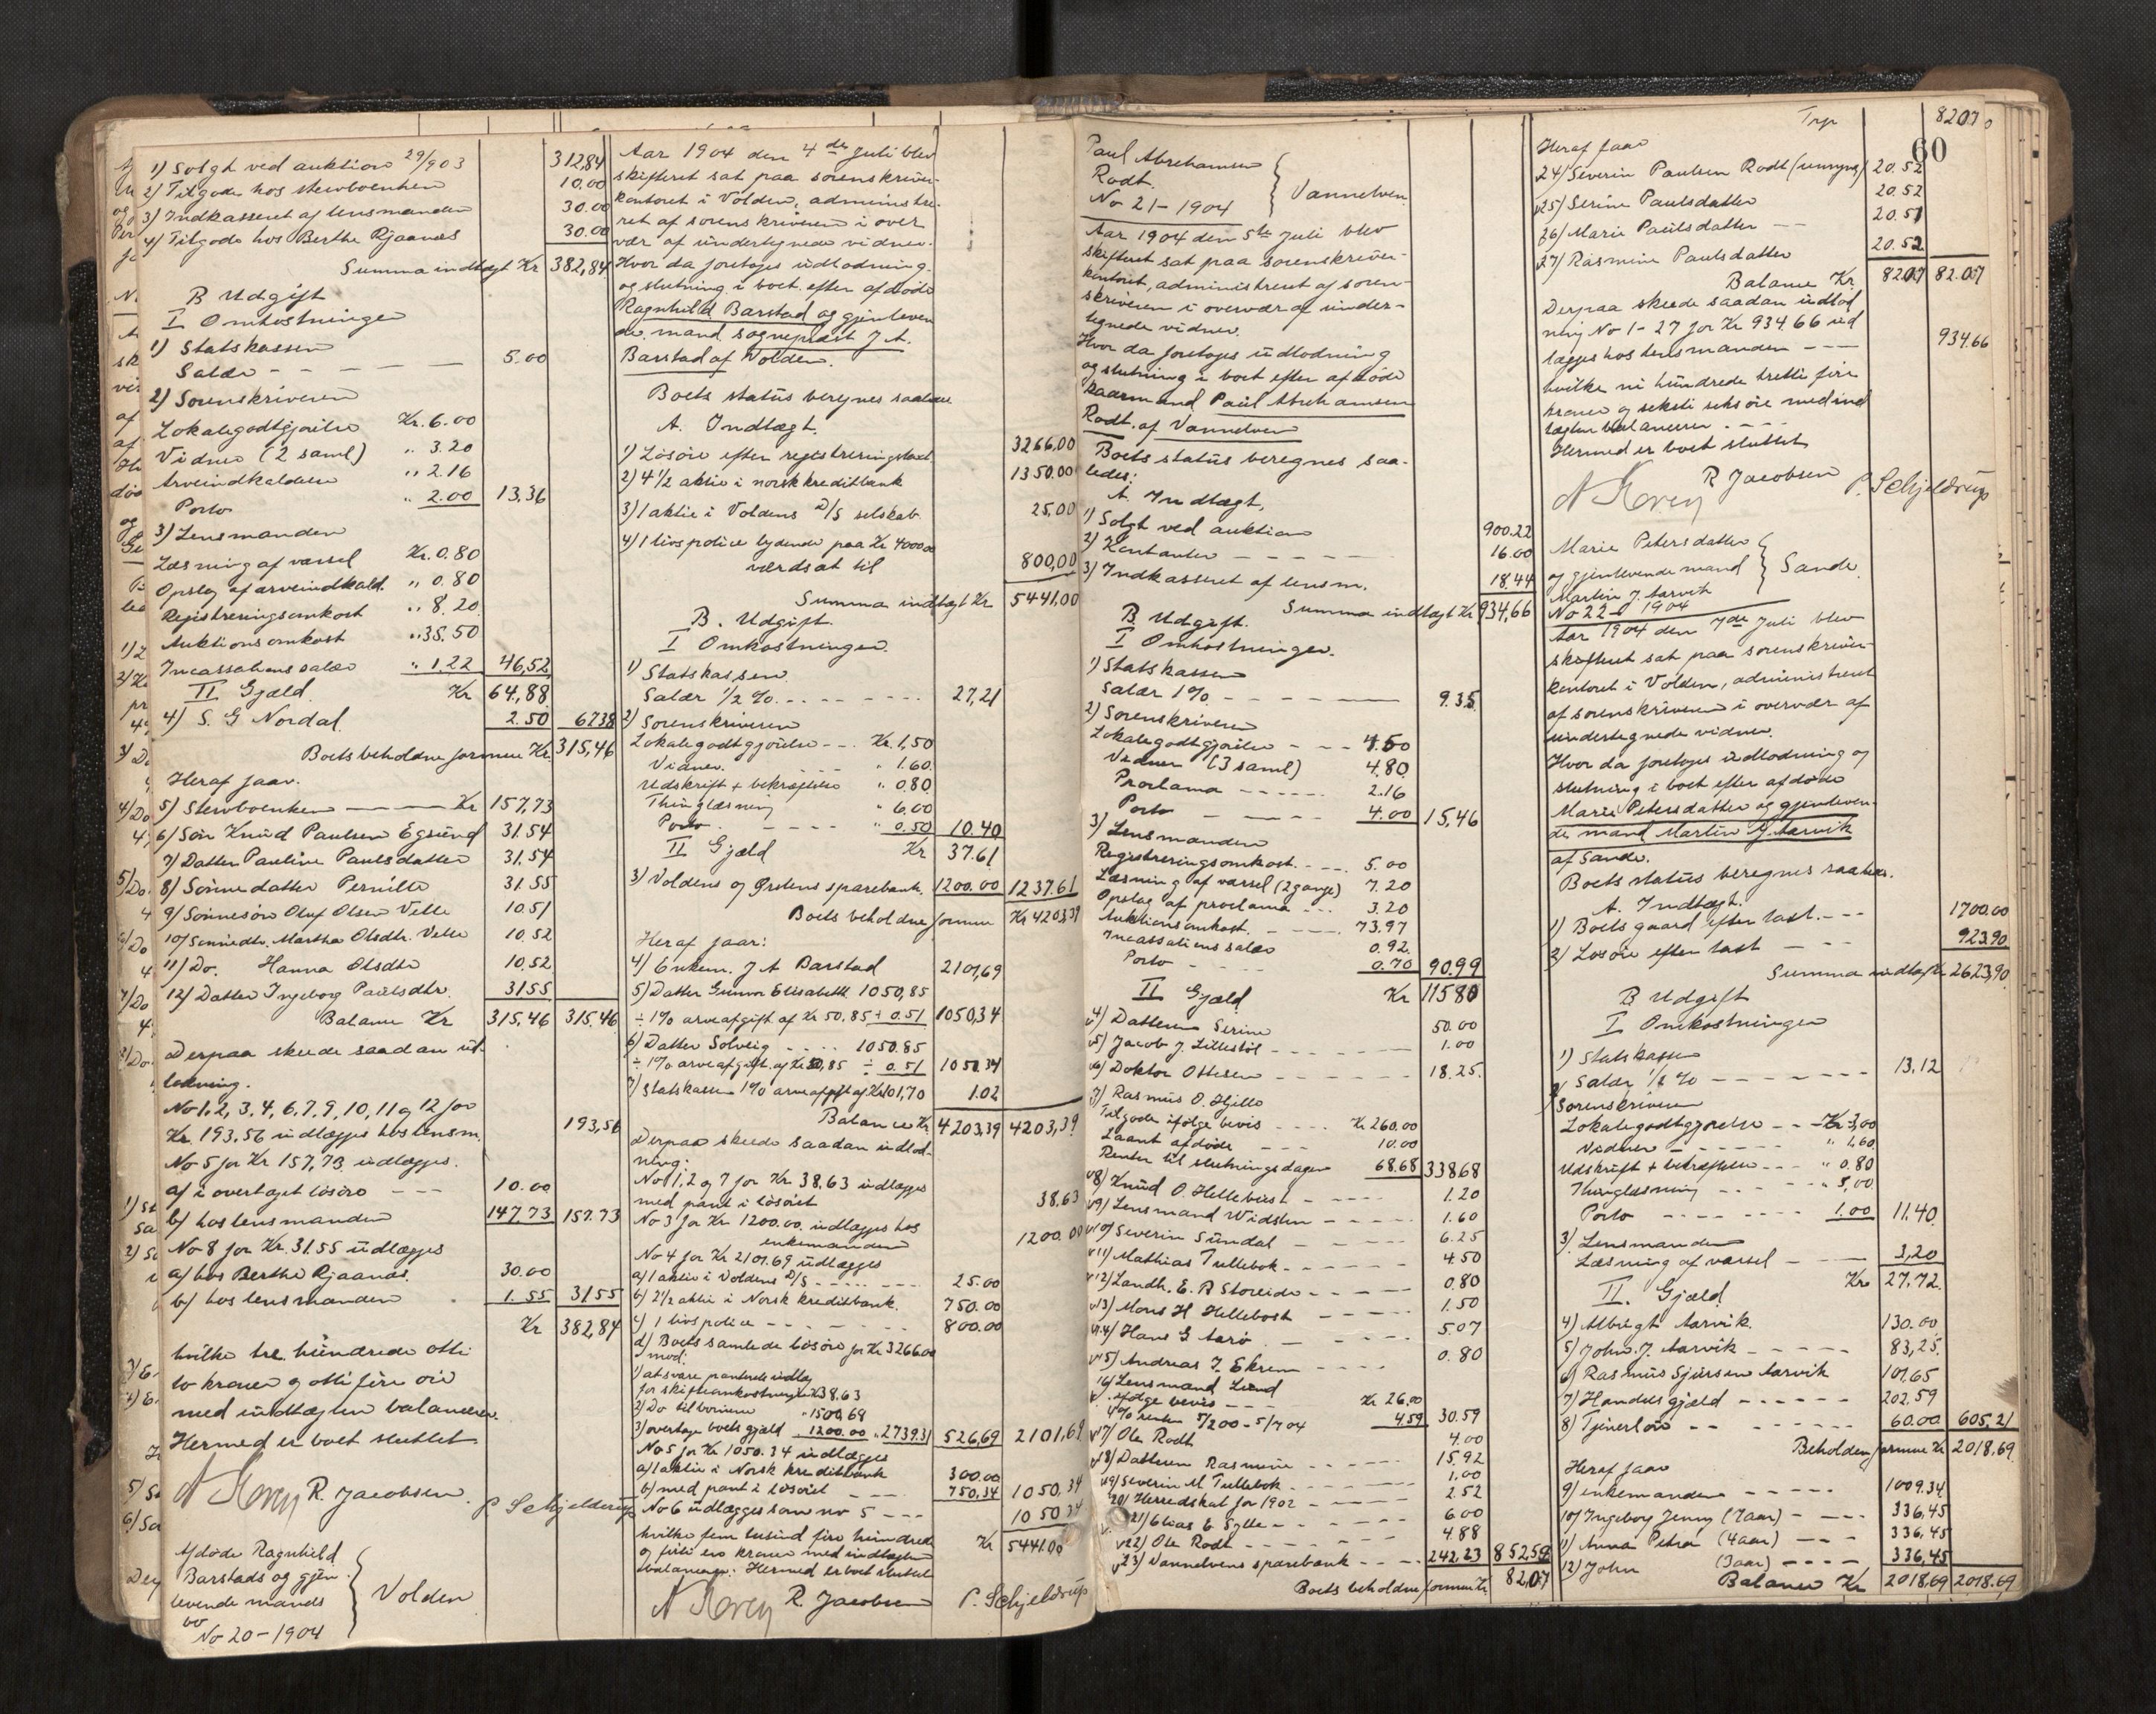 1) Solgt ved auktion 29/9 03 312,84
2) Tilgode hos sterboenken 10.00
3) Indkasseret af lensmanden 30.00
4) Tilgode hos Berthe Rjaanæs 30.00
Summa indtægt Kr 382,84
B Udgift
I Omkostninger
1) Statskassen
Salær - - - - - 5.00
2) Sorenskriveren
Lokalegodtgjörelse Kr. 6.00
Vidner (2 saml) " 3.20
Arveindkaldelse " 2.16
Porto " 2.00 13,36
3) Lensmanden
Læsning af varsel Kr. 0.80
Opslag af arveindkald. " 0.80
Registreringsomkost " 8.20
Auktionsomkost " 35.50
Incassations salær " 1.22 46,52
II Gjæld Kr 64,88
4) S. G Nordal 2.50 67.38
Boets beholdne formue Kr. 315,46
Heraf faar.
5) Sterboenken - - - Kr 157,73
6) Sön Knud Paulsen Egsund 31.54
7) Datter Pauline Paulsdatter 31.54
8) Sönnedatter Pernille 31.55
9) Sönnesön Oluf Olsen Velle 10.51
10) Sönnedtr. Martha Olsdtr. Velle 10.52
11) Do. Hanna Olsdtr 10,52
12) Datter Ingeborg Paulsdtr. 31.55
Balance Kr 315,46 315,46
Derpaa skeede saadan ud-
lodning.
No 1, 2, 3, 4, 6, 7, 9, 10, 11 og 12 for
Kr. 193,56 udlægges hos lensm. 193,56
No 5 for Kr 157,73 udlægges.
a) i overtaget lösöre - - - 10.00
b) hos lensmanden 147,73 157.73
No 8 for Kr. 31.55 udlægges
a) hos Berthe Rjaanæs. 30.00
b) hos lensmanden 1.55 31.55
Kr 382,84
hvilke tre hundrede otti
to kroner og otti fire öre
med indtægten balancerer.
Hermed er boet sluttet
R. Jacobsen. P Schjelderup
Afdöde Ragnhild
Barstads og gjen-
levende mands
bo
No 20 - 1904
Volden
Aar 1904 den 4de Juli blev
skifteret sat paa sorenskriver-
kontoret i Volden, administre-
ret af sorenskriveren i over
vær af undertegnede vidner.
Hvor da foretoges udlodning
og slutning i boet efter afdöde
Ragnhild Barstad og gjenleven
de mand sogneprest J. A.
Barstad af Volden.
Boets status beregnes saaledes
A. Indtægt.
1) Lösöre efter registreringstaxt 3266,00
2) 4 1/2 aktie i norsk kreditbank 1350.00
3) 1 aktie i Voldens D/S selskab 25,00
4) 1 livspolice lydende paa Kr 4000.00
værdsat til 800,00
Summa indtægt Kr 5441.00
B. Udgift.
I Omkostninger.
1) Statskassen.
Salær 1/2 %. - - - - 27,21
2) Sorenskriveren
Lokalegodtgjörelse - - Kr. 1,50
Vidner. - - - " 1.60
Udskrift + bekræftelse " 0.80
Thinglæsning " 6.00
Porto. - - - " 0.50 10.40
II Gjæld Kr 37.61
3) Voldens og Örstens sparebank. 1200.00 1237.61
Boets beholdne formue Kr 4203,39
Heraf faar:
4) Enkem. J A Barstad 2101,69
5) Datter Gunvor Elisabeth 1050,85
÷ 1% arveafgift af Kr 50,85 ÷ 0.51 1050,34
6) Datter Solveig - - - 1050.85
÷ 1% arveafgift. af Kr 50,85 ÷ 0.51 1050.34
7) Statskassen 1% arveafgift af Kr 101,70 1.02
Balance Kr 4203,39 4203,39
Derpaa skeede saadan udlod-
ning:
No 1, 2 og 7 for Kr. 38,63 udlægges
med pant i lösöret 38.63
No 3 for Kr. 1200.00. udlægges hos
enkemanden 1200.00
No 4 for Kr 2101.69 udlægges
a) 1 aktie i Voldens D/S - - - 25.00
b) 2 1/2 aktie i Norsk kreditbank. 750.00
c) 1 livspolice - - - 800.00
d) Boets samlede lösöre for Kr 3266.00
mod:
1) at svare panterets indlæg
for skifteomkostninger Kr 38.63
2) Do til börnene " 1500,68
3) overtage boets gjæld " 1200.00 " 2739.31 526,69 2101,69
No 5 for Kr. 1050.34 udlægges
a) 1 aktie i Norsk kreditbank 300.00
b) med pant i lösöret 750,34 1050,34
No 6 udlægges som no 5 - - - 1050 34
hvilke fem tusind fire hundrede
og firti en kroner med indtægten Kr 5441.00
balancerer. Hermed er boet sluttet
R. Jacobsen P. Schjelderup
Paul Abrahamsen
Rodt.
No 21 - 1904
Vannelven.
Aar 1904 den 5te Juli blev
skifteret sat paa sorenskriver-
kontoret, administreret af soren-
skriveren i overvær af under-
tegnede vidner.
Hvor da foretoges udlodning
og slutning i boet efter afdöde
kaarmand Paul Abrahamsen
Rodt. af Vannelven
Boets status beregnes saa-
ledes:
A. Indtægt,
1) Solgt ved auktion 900.22
2) Kontanter - - - - 16.00
3) Indkasseret af lensm. 18.44
Summa indtægt Kr 934,66
B Udgift.
I Omkostninger.
1) Statskassen
Salær 1% - - - - 9.35.
2) Sorenskriveren
Lokalegodtgjörelse - - - 4.50
Vidner (3 saml) 4.80
Proclama - - - - 2.16
Porto - - - 4.00 15,46
3) Lensmanden
Registreringsomkost. - - - 5.00
Læsning af varsel (2 gange) 7.20
Opslag af proclama - - - 3.20
Auktionsomkost. - - - 73.97
Incassations salær 0.92
Porto - - - 0.70 90.99
II Gjæld Kr 115 80
4) Datteren Serine 50.00
5) Jacob J. Lillestöl - - - 1.00
6) Doktor Ottesen - - - 18.25.
7) Rasmus O. Hjelle
Tilgode ifölge bevis - - - Kr 260.00
Laant afdöde - - - 10.00
Renter til slutningsdagen 68.68 338 68
8) Knud O. Hellebust - - - 1.20
9) Lensmand Widsten - - - 1.60
10) Severin Sundal - - - 6.25
11) Mathias Tullebok - - - 4.50
12) Landh. E. R Storeide - - - 0.80
13) Mons H Hellebost - - - 1.50
14) Hans G Aarö - - - 5.07
15) Andreas J. Ekrem - - - 0.80
16) Lensmand Lund
ifölge bevis - - - Kr 26.00
4% renter 5/2 00 - 5/7 04 4.59 30.59
17) Ole Rodt 4.00
18) Datteren Rasmine - - - 15.92
19) Severin M Tullebok - - - 1,00
20) Herredskat for 1902 - - - 2.52
21) Elias E Sylte - - - 6.00
22) Ole Rodt - - - 4.88
23) Vannelvens sparebank - - - 242,23 852,59
Boets beholdne formue Kr. 82,07
60
Trp 82.07
Heraf faar
24) Severin Paulsen Rodt (umynd) 20.52
25) Serine Paulsdatter 20.52
26) Marie Paulsdatter - - 20.51
27) Rasmine Paulsdatter 20.52
Balance Kr. 82.07 82.07
Derpaa skeede saadan udlod
ning No 1 - 27 for Kr 934.66 ud
lægges hos lensmanden - - - 934.66
hvilke ni hundrede tretti fire
kroner og seksti seks öre med ind
tægten balancerer. - - -
Hermed er boet sluttet
R Jacobsen P. Schjelderup
Marie Petersdatter
og gjenlevende mand
Martin J. Aarvik
No 22 - 1904
Sande.
Aar 1904 den 7de Juli blev
skifteret sat paa sorenskriver-
kontoret i Volden, administreret
af sorenskriveren i overvær af
undertegnede vidner.
Hvor da foretoges udlodning og
slutning i boet efter afdöde
Marie Petersdatter og gjenleven-
de mand Martin J. Aarvik
af Sande.
Boets status beregnes saaledes.
A. Indtægt.
1) Boets gaard efter taxt. - - - 1700.00
2) Lösöre efter taxt - - - 923,90
Summa indtægt Kr 2623,90
B Udgift
I Omkostninger
1) Statskassen
Salær 1/2 % - - - 13,12
2) Sorenskriveren
Lokalegodtgjörelse - - Kr 3,00
Vidner - - - " 1,60
Udskrift + bekræftelse - - - " 0.80
Thinglæsning - - - " 5,00
Porto - - - 1.00 11.40
3) Lensmanden
Læsning af varsel - - - 3,20
II. Gjæld Kr 27.72
4) Albregt Aarvik. 130.00
5) John. J. Aarvik - - - 83,25.
6) Rasmus Sjursen Aarvik 101,65
7) Handelsgjæld - - - 202.59
8) Tjenerlön - - - 60.00 605,21
Beholden formue Kr 2018,69
Heraf faar
9) enkemanden - - - 1009.34
10) Ingeborg Jenny (7 aar) - - - 336,45
11) Anna Petra (4 aar) - - - 336,45
12) John (3 aar) - - - 336,45
Balance Kr 2018,69 2018.69